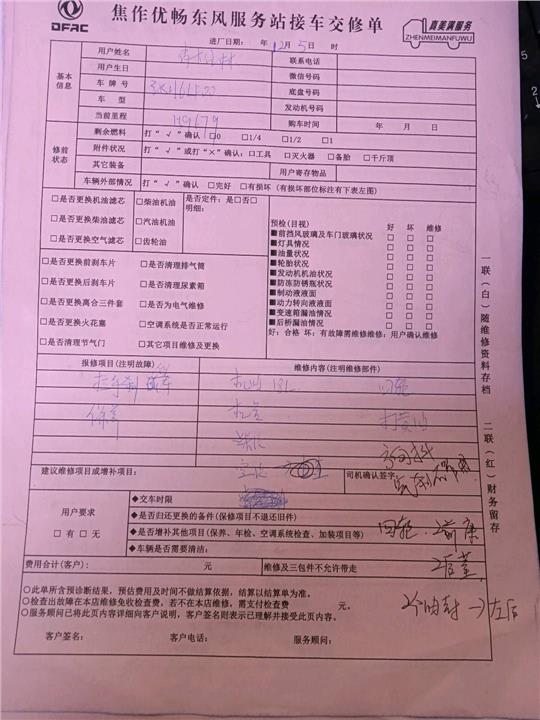 DFAC
焦作优畅东风服务站接车交修单
真美满服务
ZHENMEIMANFUWU
进厂日期： 年 12月 5日 时
基本信息
用户姓名 联系电话
用户生日 微信号码
车 牌 号 底盘号码
车 型 发动机号码
当前里程 119679 购车时间 年 月 日
修前状态
剩余燃料 打“√”确认 □0 □1/4 □1/2 □1
附件状况 打“√”或打“×”确认：□工具 □灭火器 □备胎 □千斤顶
其它装备 用户寄存物品
车辆外部情况 打“√”确认 □完好 □有损坏（有损坏部位标注有下表左图）
□是否更换机油滤芯 □柴油机油 是否定件：是□否□
□是否更换柴油滤芯 □汽油机油 明细：
□是否更换空气滤芯 □齿轮油
□是否更换前刹车片 □是否清理排气筒
□是否更换后刹车片 □是否清理尿素箱
□是否更换离合三件套 □是否为电气维修
□是否更换火花塞 □空调系统是否正常运行
□是否清理节气门 □其它项目维修及更换
预检(目视) 好 坏 维修
■前挡风玻璃及车门玻璃状况 □ □ □
■灯具情况 □ □ □
■油量状况 □ □ □
■轮胎状况 □ □ □
■发动机机油状况 □ □ □
■防冻防锈瓶状况 □ □ □
■制动液液面 □ □ □
■动力转向液液面 □ □ □
■变速箱漏油情况 □ □ □
■后桥漏油情况 □ □ □
好：合格 坏：有故障需维修维修：用户确认维修
报修项目(注明故障) 维修内容(注明维修部件)
保养
打黄油
建议维修项目或增补项目： 司机确认签字：
用户要求
□有 □无
◆交车时限
◆是否归还更换的备件(保修项目不退还旧件)
◆是否增补其他项目(保养、年检、空调系统检查、加装项目等)
◆车辆是否需要清洁：
费用合计(客户)： 元 维修及三包件不允许带走
○此单所含预诊断结果，预估费用及时间不做结算依据，结算以结算单为准。
○检查出故障在本店维修免收检查费，若不在本店维修，需支付检查费 元。
○服务顾问已将此页内容详细向客户说明，客户签名则表示已理解并接受此页内容。
客户签名： 客户电话： 服务顾问：
一联（白）随维修资料存档
二联（红）财务留存